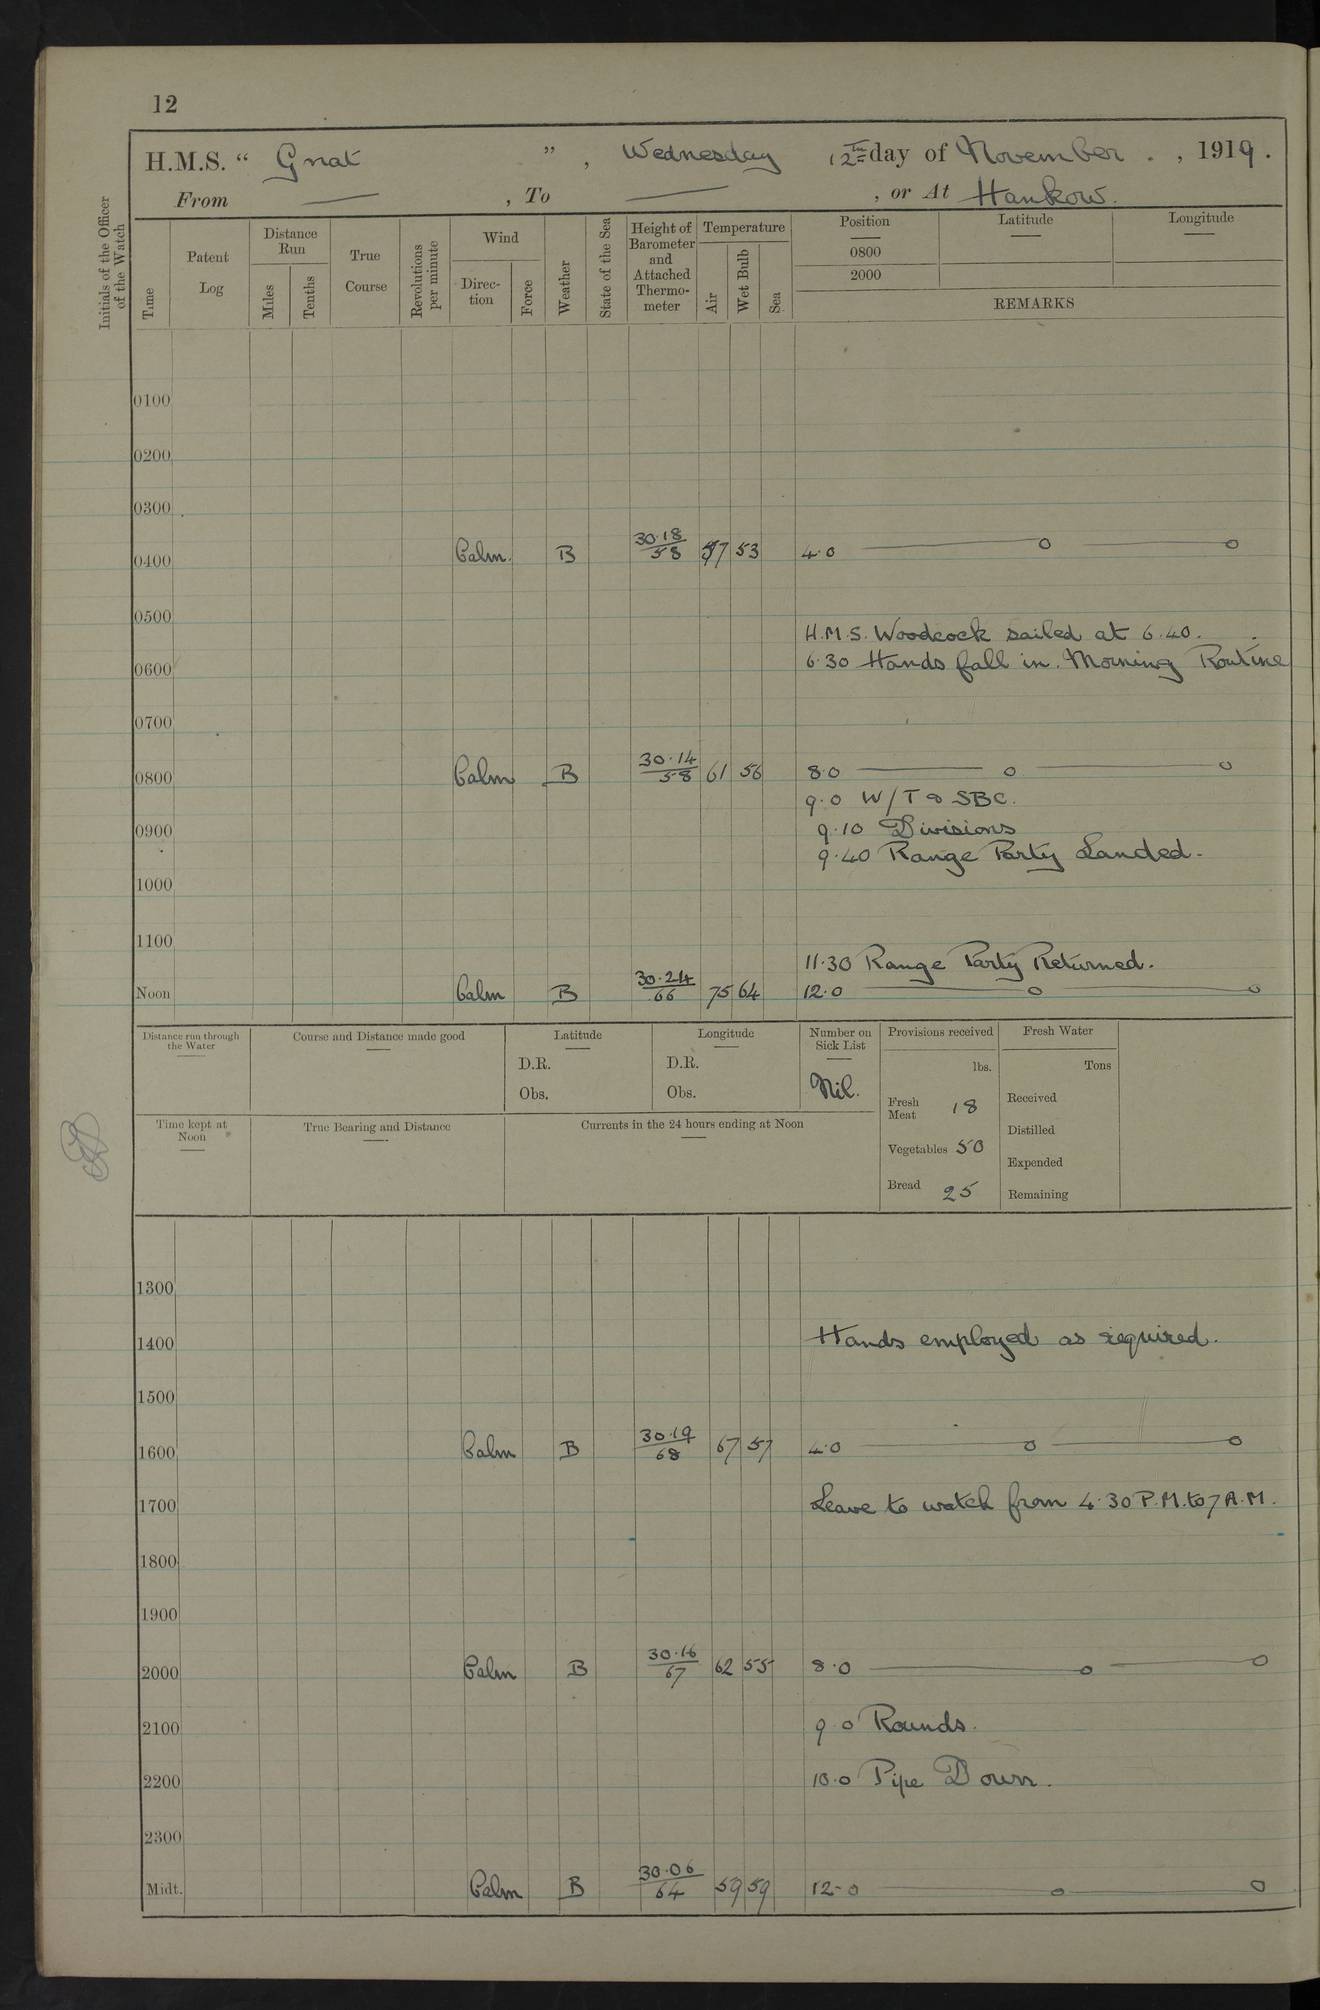 12
H.M.S. “ Gnat ” , Wednesday 12th day of November . , 1919 .
From — , To — , or At Hankow.
Initials of the Officer of the Watch
Time
Patent Log
Distance Run
Miles
Tenths
True Course
Revolutions per minute
Wind
Direction
Force
Weather
State of the Sea
Height of Barometer and Attached Thermometer
Temperature
Air
Wet Bulb
Sea
Position
Latitude
Longitude
0800
2000
REMARKS
0100
0200
0300
0400 Calm. B 30.18/58 57 53 4.0
0500
H.M.S. Woodcock sailed at 6.40.
0600 6.30 Hands fall in. Morning Routine
0700
0800 Calm B 30.14/58 61 56 8.0
9.0 W/T & SBC.
0900 9.10 Divisions
9.40 Range Party Landed.
1000
1100
11.30 Range Party Returned.
Noon Calm B 30.24/66 75 64 12.0
Distance run through the Water
Course and Distance made good
Latitude
D.R.
Obs.
Longitude
D.R.
Obs.
Number on Sick List
Nil.
Provisions received
lbs.
Fresh Meat 18
Vegetables 50
Bread 25
Fresh Water
Tons
Received
Distilled
Expended
Remaining
Time kept at Noon
True Bearing and Distance
Currents in the 24 hours ending at Noon
1300
1400 Hands employed as required.
1500
1600 Calm B 30.19/68 67 57 4.0
1700 Leave to watch from 4.30 P.M. to 7 A.M.
1800
1900
2000 Calm B 30.16/67 62 55 8.0
2100 9.0 Rounds.
2200 10.0 Pipe Down.
2300
Midt. Calm B 30.06/64 59 59 12.0